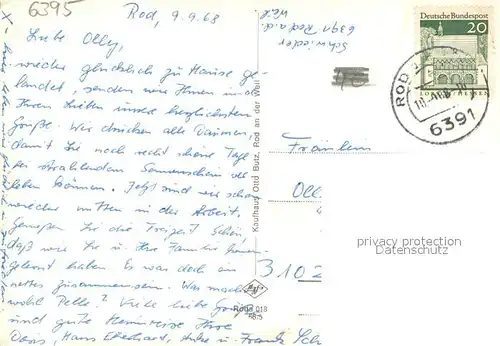 6395
Rod, 9.9.68
Liebe Olly,
wieder glücklich zu Hause ge-
landet, senden wir Ihnen und
Ihren Lieben unsere herzlichsten
Grüße. Wir drücken alle Daumen,
damit Sie noch recht schöne Tage
bei strahlendem Sonnenschein ver-
leben können. Jetzt sind wir schon
wieder mitten in der Arbeit.
Genießen Sie die Freizeit! Schön,
daß wir Sie u. Ihre Familie kennen-
gelernt haben. Es war doch ein
nettes Zusammensein. Was macht
wohl Pelle? Viele liebe Grüße
und gute Heimreise Ihre
Doris, Hans Eberhard, und Familie Sch
Kaufhaus Otto Butz, Rod an der Weil
Schwieder
6391 Rod a.d.
Weil
Deutsche Bundespost
20
LORSCH/HESSEN
ROD
6391
Fräulein
Olly
3102
privacy protection
Datenschutz
Roda 018